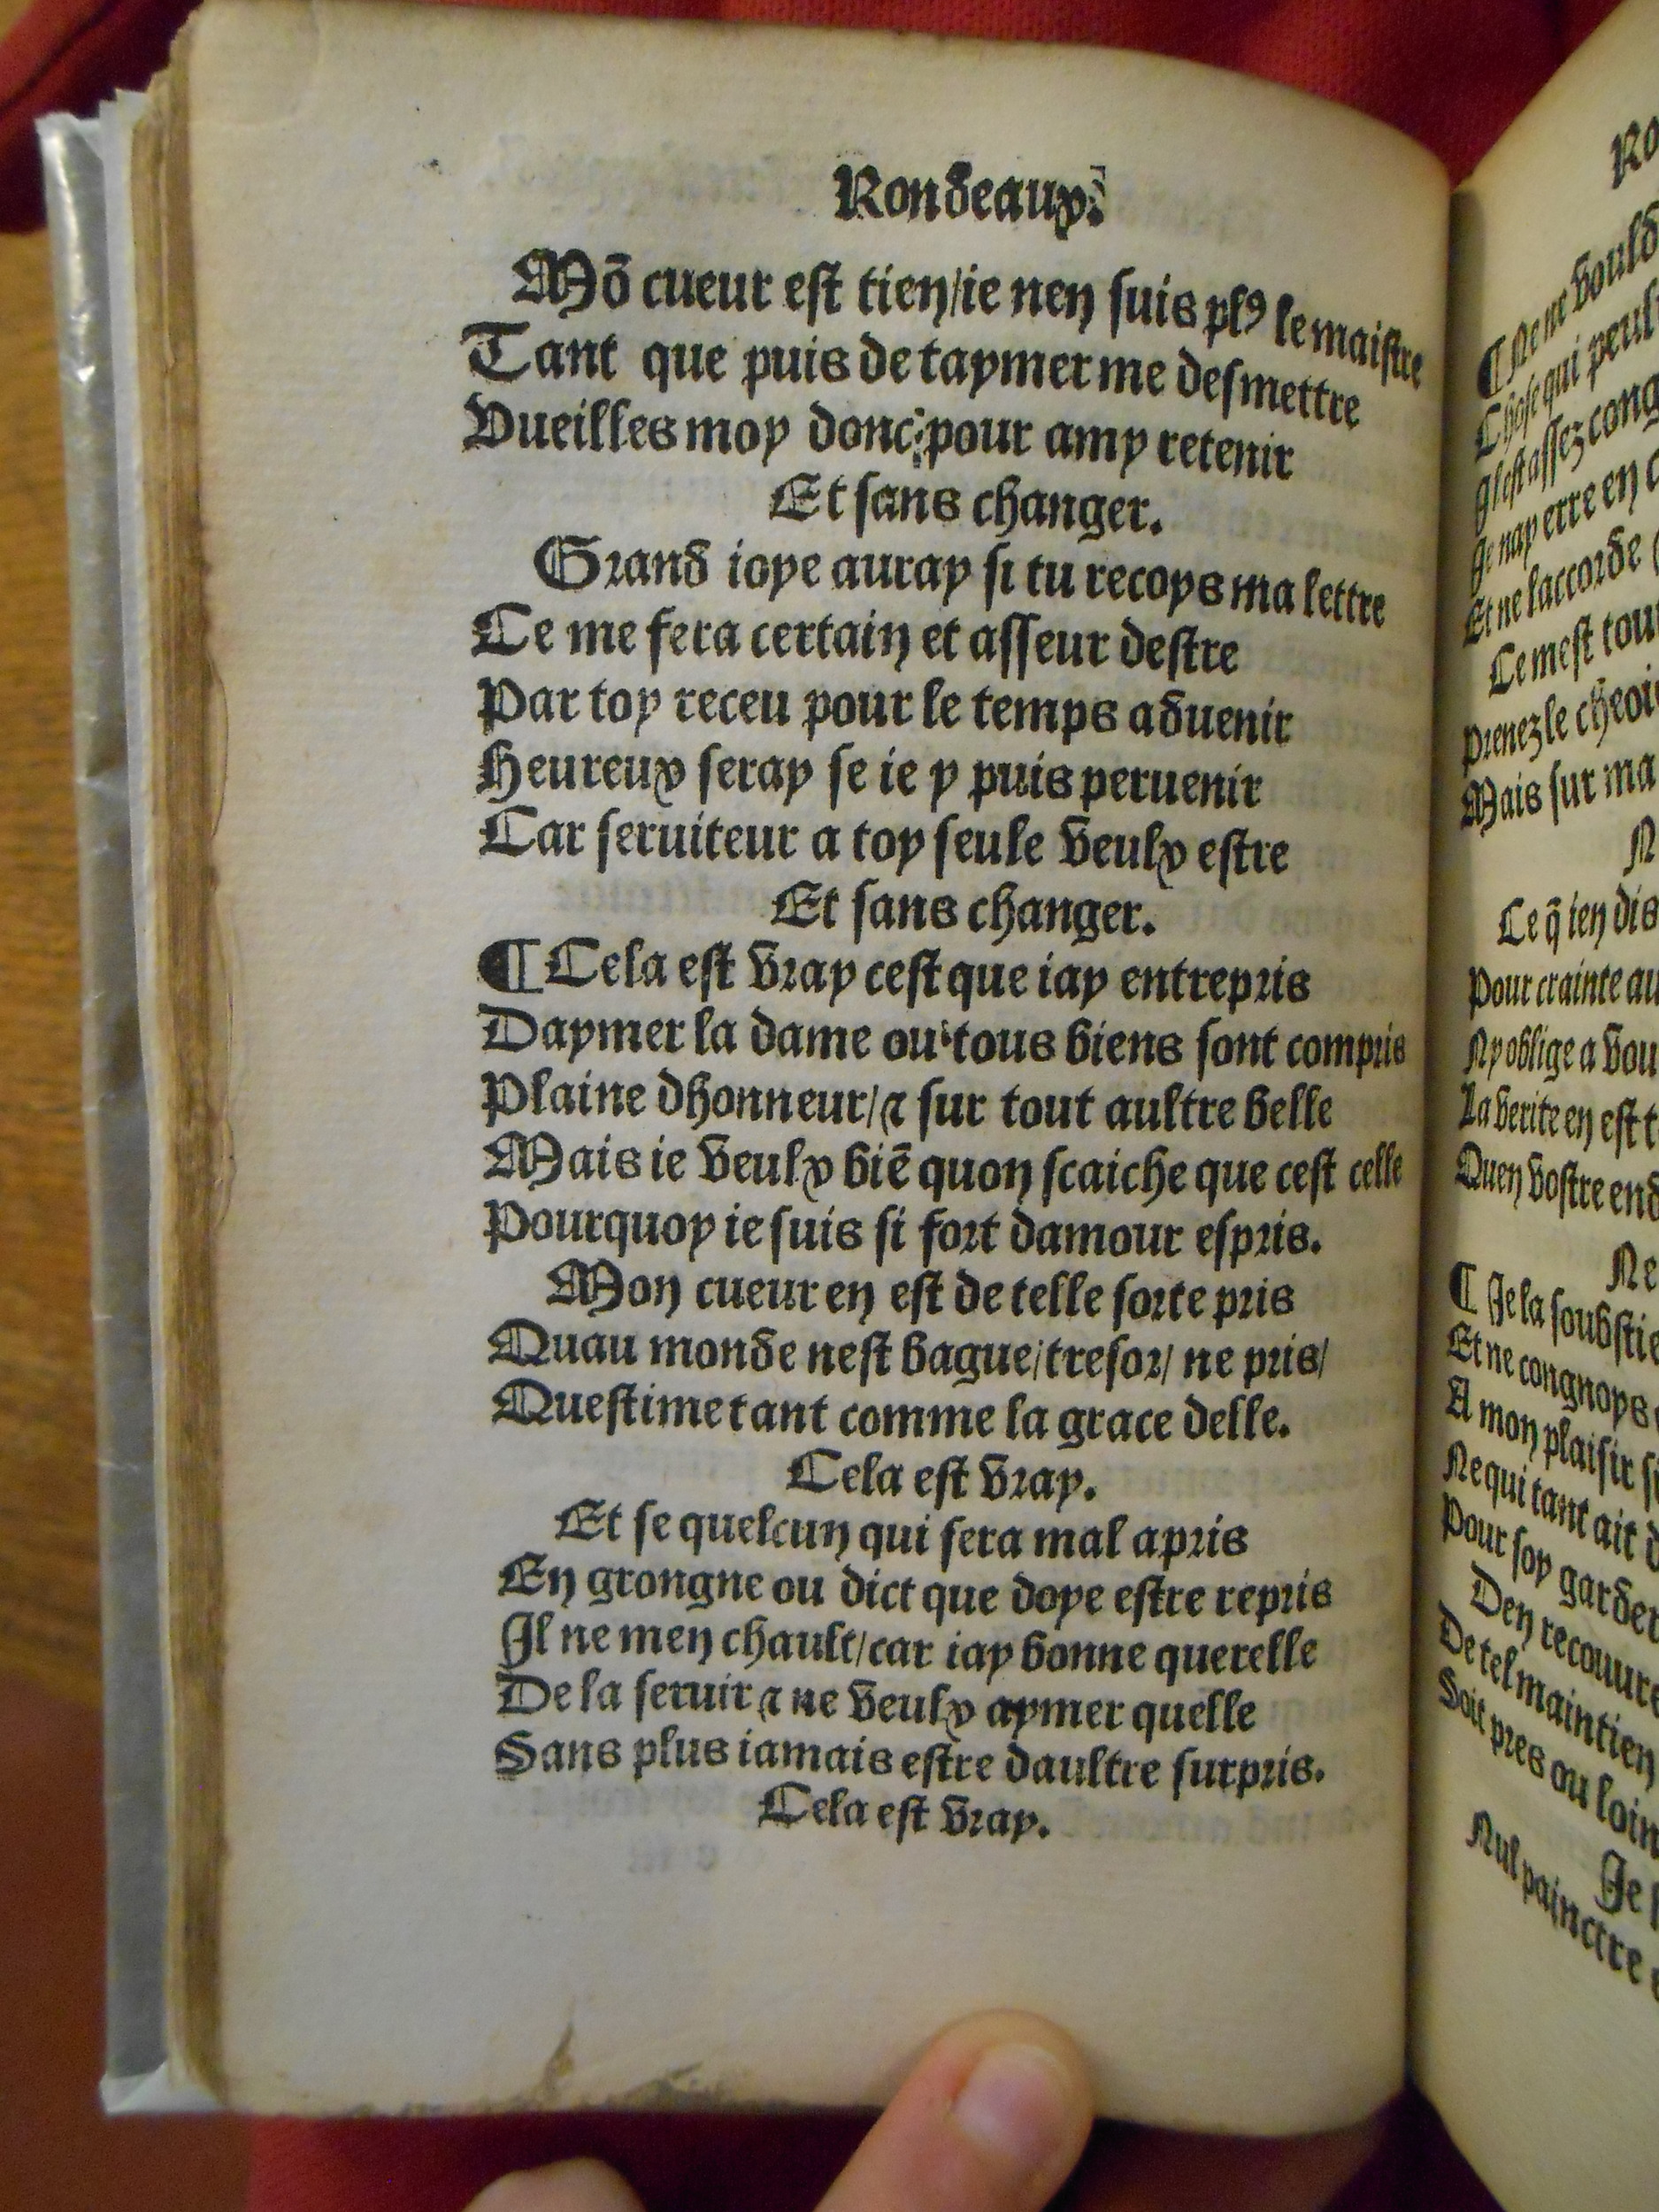 Rondeaux.
Mõ cueur est tien/ie nen suis plꝰ le maistre
Tant que puis de taymer me desmettre
Vueilles moy donc pour amy retenir
Et sans changer.
Grand ioye auray si tu recoys ma lettre
Ce me fera certain et asseur destre
Par toy receu pour le temps aduenir
Heureux seray se ie y puis peruenir
Car seruiteur a toy seule veulx estre
Et sans changer.
¶ Cela est vray cest que iay entrepris
Daymer la dame ou tous biens sont compris
Plaine dhonneur/⁊ sur tout aultre belle
Mais ie veulx biẽ quon scaiche que cest celle
Pourquoy ie suis si fort damour espris.
Mon cueur en est de telle sorte pris
Quau monde nest bague/tresor/ ne pris/
Questime tant comme la grace delle.
Cela est vray.
Et se quelcun qui sera mal apris
En grongne ou dict que doye estre repris
Il ne men chault/car iay bonne querelle
De la seruir ⁊ ne veulx aymer quelle
Sans plus iamais estre daultre surpris.
Cela est vray.
Ro
¶ Ne ne vould
Chose qui peul
Il est assez cong
Je nay erre en
Et ne laccorde
Ce mest tou
Prenez le cheoi
Mais sur ma
N
Ce q̃ ien dis
Pour crainte au
Ny oblige a vou
La verite en est t
Quen vostre end
Ne
¶ Je la soubstie
Et ne congnoys
A mon plaisir si
Ne qui tant ait d
Pour soy garder
Den recouure
De tel maintien
Soit pres ou loin
Je
Nul painctre